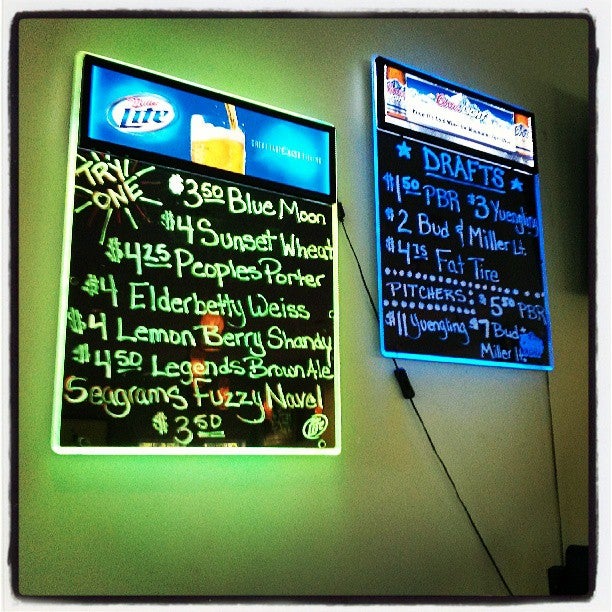 Miller
Lite
GREAT TASTE. LESS FILLING
TRY
ONE
$3.50 Blue Moon
$4 Sunset Wheat
$4.25 Peoples Porter
$4 Elderbetty Weiss
$4 Lemon Berry Shandy
$4.50 Legends Brown Ale
Seagrams Fuzzy Navel
$3.50
Lite
Coors Light
DRAFTS
$1.50 PBR $3 Yuengling
$2 Bud & Miller Lt.
$4.75 Fat Tire
PITCHERS: $5.50 PBR
$11 Yuengling $7 Bud +
Miller lt